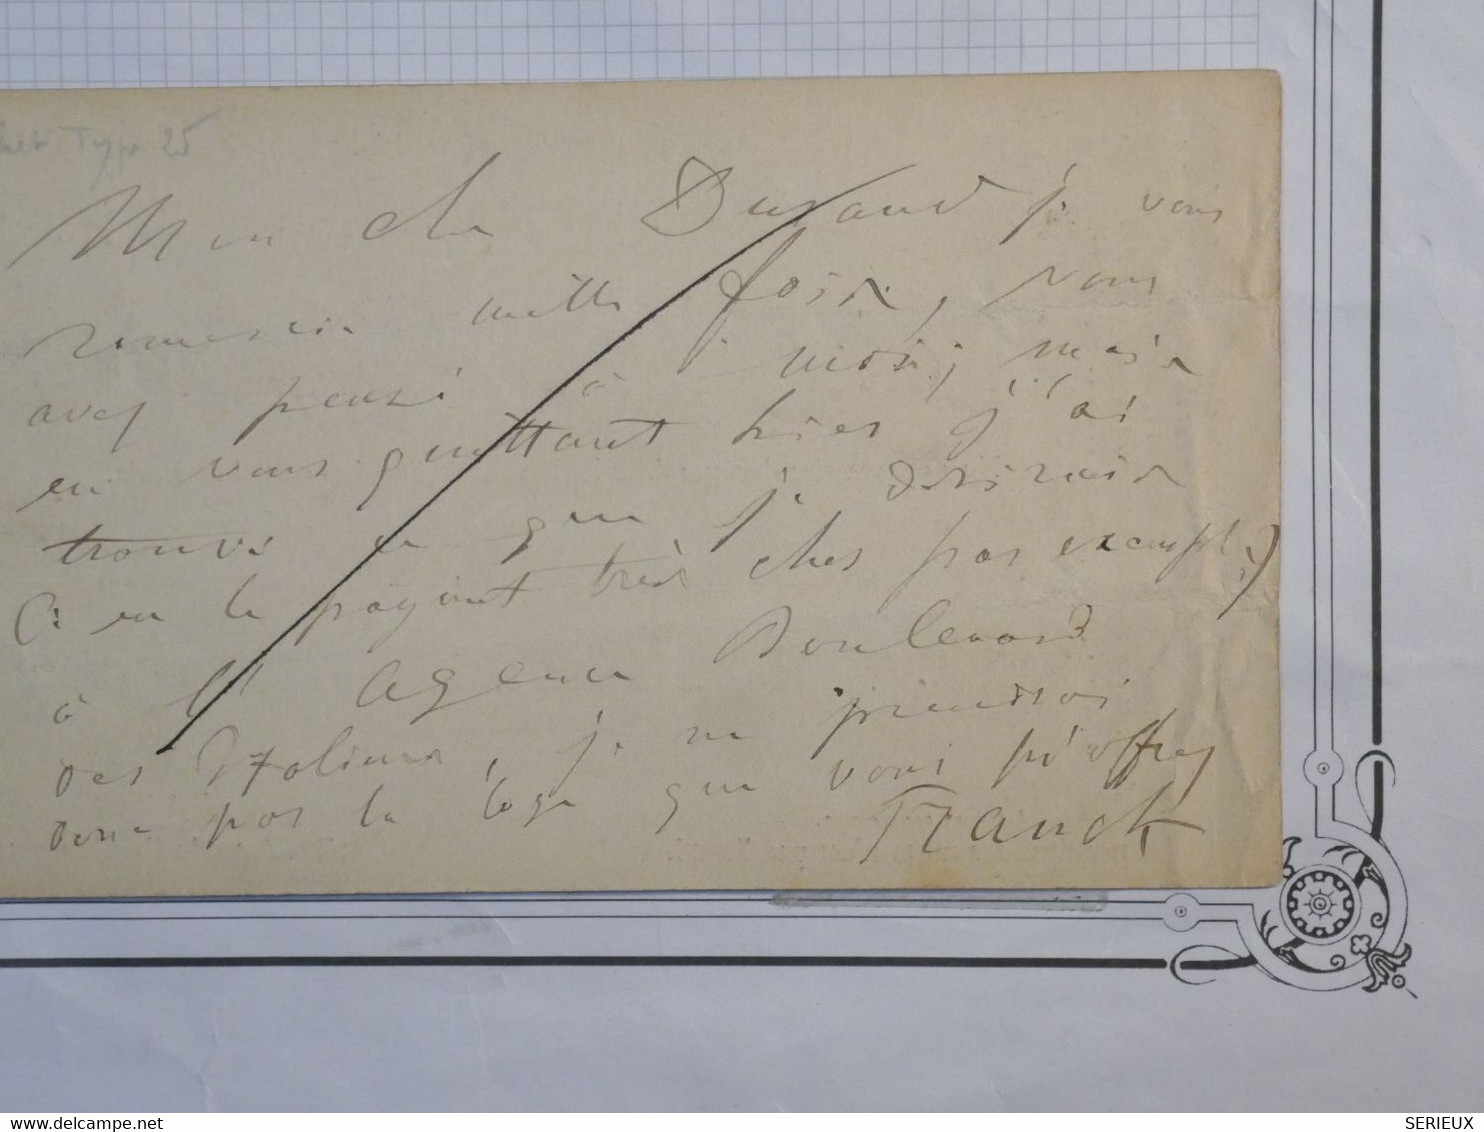 Type 25
Mon cher Durand je vous
remercie mille fois, vous
avez pensé à moi; mais
en vous quittant hier j'ai
trouvé ce que je désirais
(& en le payant très cher par exemple)
à l'Agence Boulevard
des Italiens, je ne prendrai
donc pas la loge que vous m'offrez
Franck
SERIEUX